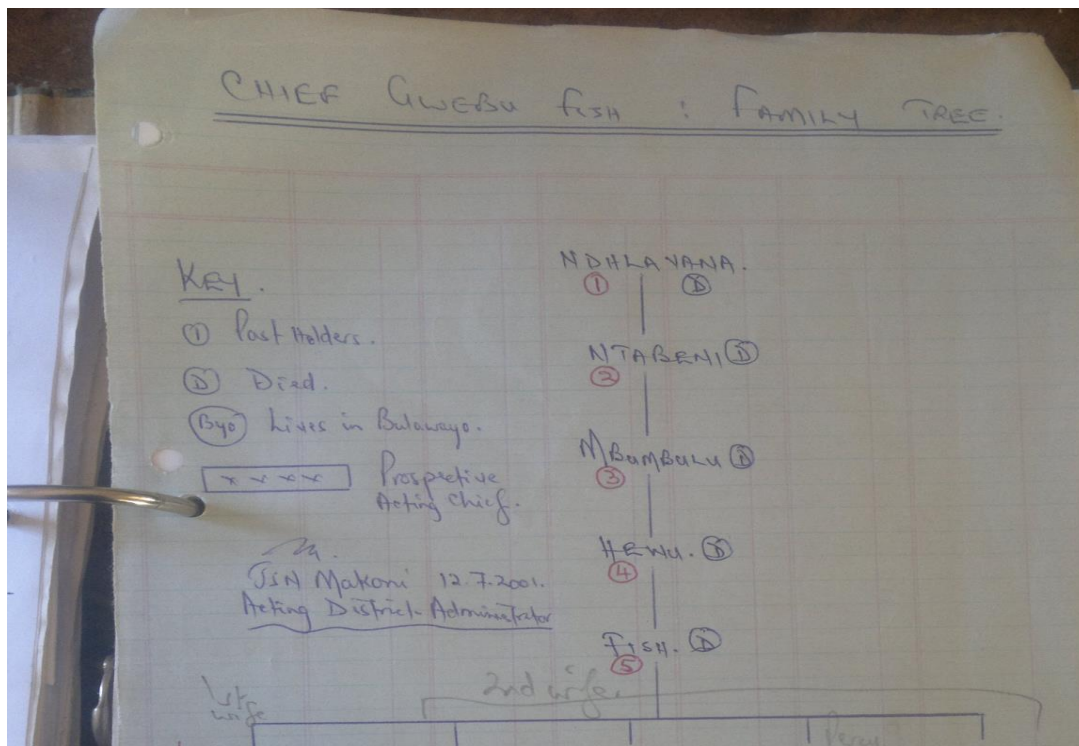 CHIEF GWEBU FISH : FAMILY TREE.
KEY.
① Past Holders.
Ⓓ Died.
Byo Lives in Bulawayo.
x x x x Prospective
Acting Chief.
JSN Makoni 12.7.2001.
Acting District Administrator
NDHLAVANA.
① Ⓓ
NTABENI Ⓓ
②
MBUMBULU Ⓓ
③
HEWU. Ⓓ
④
FISH. Ⓓ
⑤
1st wife
2nd wife.
Percy